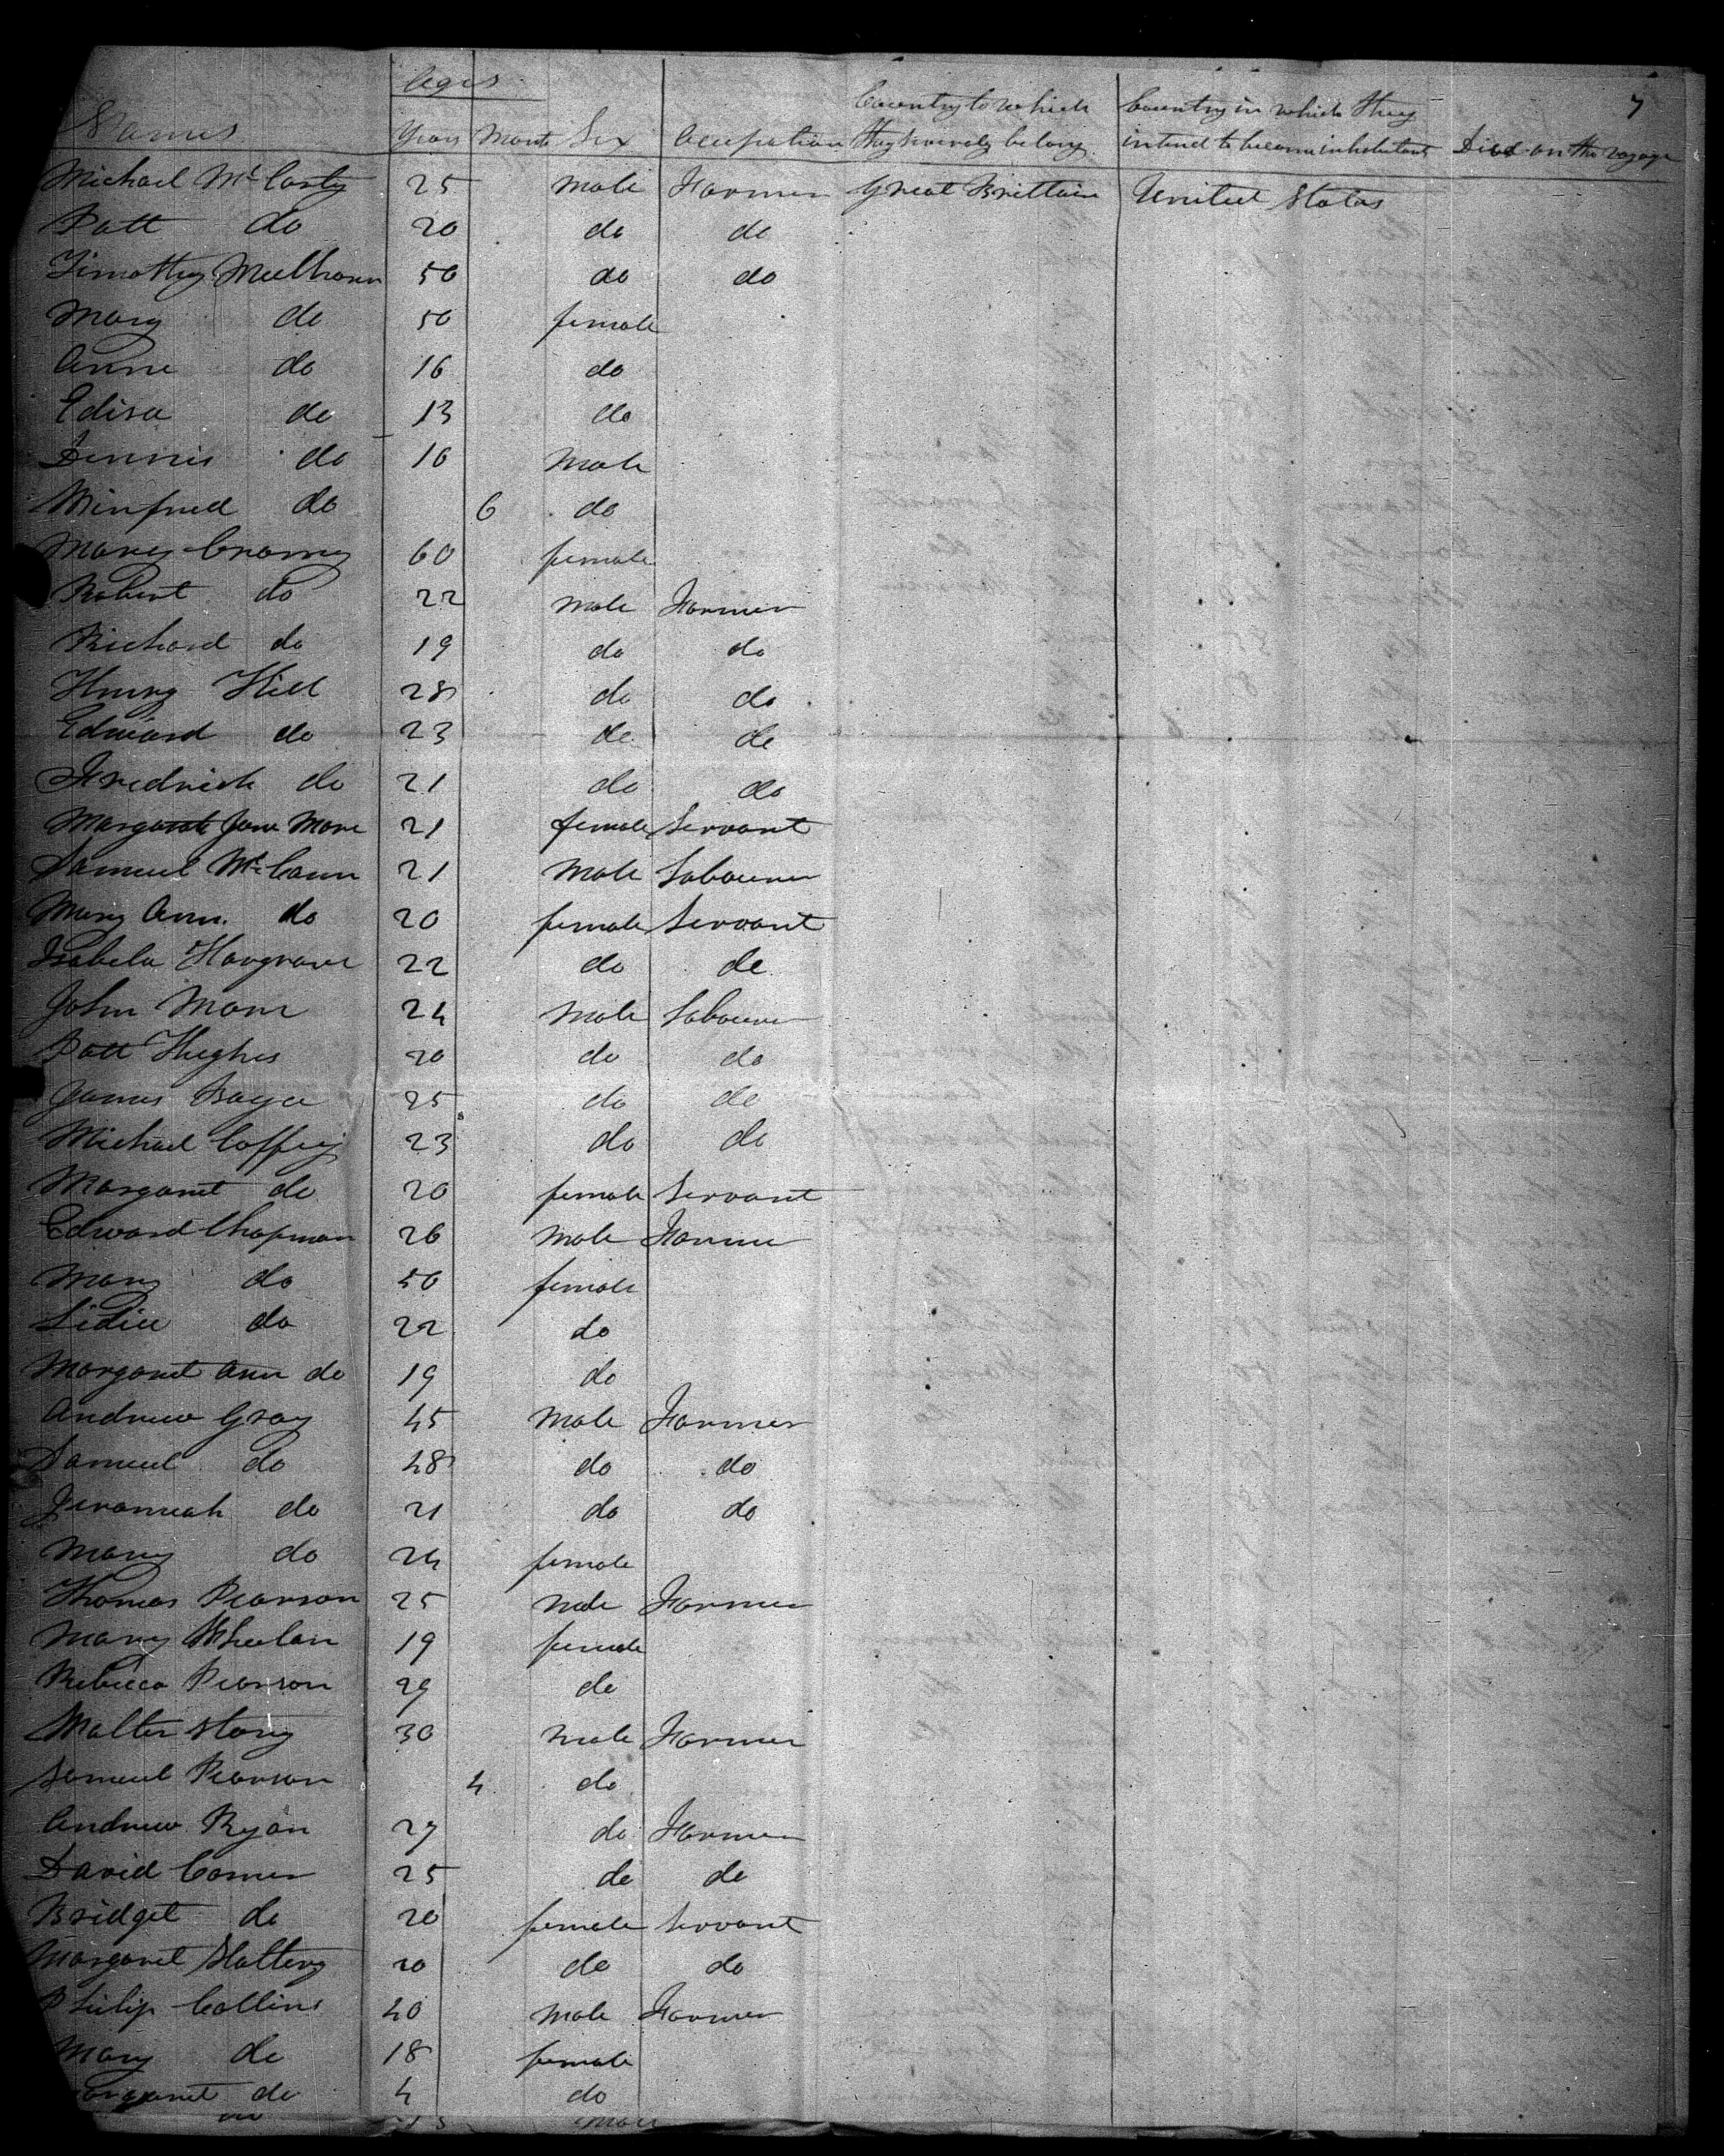 7
Ages
Names Years Month Sex Occupation Country to which they severely belong Country in which they intend to become inhabitants Died on the voyage
Michael McCarty 25 male Farmer Great Brittain United States
Patt do 20 do do
Timothy 50 do do
Mary do 50 female
Anne do 16 do
Eliza do 13 do
Dennis do 10 Male
Winfred do 6 do
Mary 60 female
Robert do 22 male Farmer
Richard do 19 do do
Henry Hill 28 do do
Edward do 23 do do
Fredrick do 21 do do
Margaret Jane More 21 female Servant
Samuel McCann 21 Male Labourer
Mary Ann do 20 female Servant
Isabela Hargrave 22 do do
John More 24 Male Labourer
Patt Hughes 20 do do
James 25 do do
Michael Coffey 23 do do
Margaret do 20 female Servant
Edward Chapman 26 Male Farmer
Mary do 50 female
do 22 do
Margaret Ann do 19 do
Andrew Gray 45 Male Farmer
Samuel do 48 do do
Jeremieah do 21 do do
Mary do 24 female
Thomas Pearson 25 Male Farmer
Mary Whelan 19 female
Rebecca Pearson 29 do
Walter Story 30 Male Farmer
Samuel Pearson 4 do
Andrew Ryan 27 do Farmer
David Comer 25 do do
Bridget do 20 female Servant
Margaret Slattery 20 do do
Philip Collins 40 Male Farmer
Mary do 18 female
Margaret do 4 do
Male